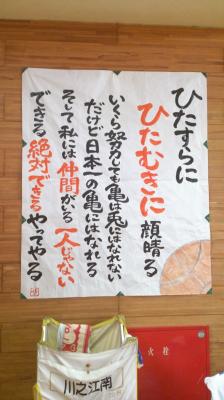 ひたすらに
ひたむきに顔晴る
いくら努力しても亀は兎にはなれない
だけど日本一の亀にはなれる
そして私には仲間がいる一人じゃない
できる絶対できるやってやる
川之江南
火栓